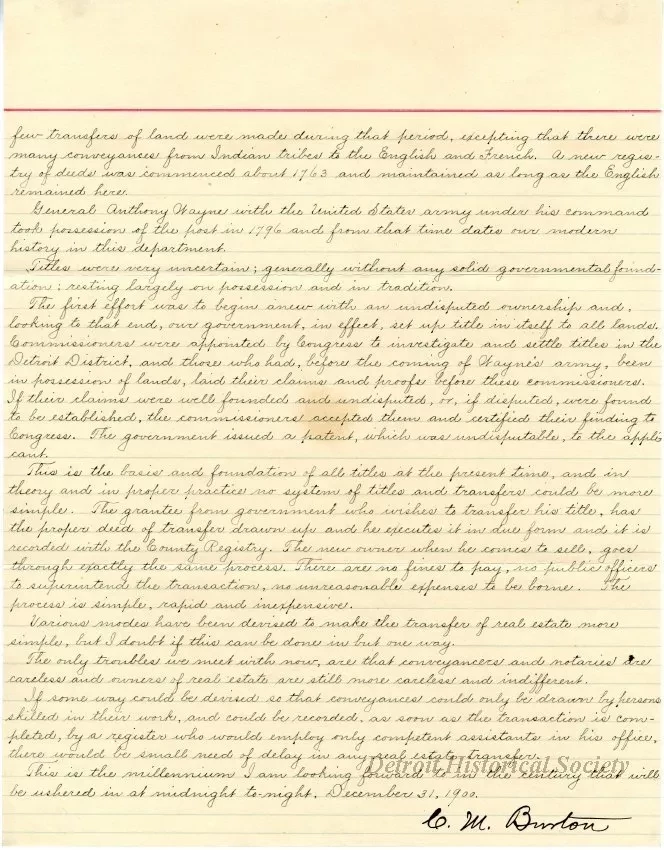 few transfers of land were made during that period, excepting that there were
many conveyances from Indian tribes to the English and French. A new regis-
try of deeds was commenced about 1763 and maintained as long as the English
remained here.
General Anthony Wayne with the United States army under his command
took possession of the post in 1796 and from that time dates our modern
history in this department.
Titles were very uncertain; generally without any solid governmental found-
ation; resting largely on possession and in tradition.
The first effort was to begin anew with an undisputed ownership and,
looking to that end, our government, in effect, set up title in itself to all lands.
Commissioners were appointed by Congress to investigate and settle titles in the
Detroit District, and those who had, before the coming of Wayne's army, been
in possession of lands, laid their claims and proofs before these commissioners.
If their claims were well founded and undisputed, or, if disputed, were found
to be established, the commissioners accepted them and certified their finding to
Congress. The government issued a patent, which was undisputable, to the appli-
cant.
This is the basis and foundation of all titles at the present time, and in
theory and in proper practice no system of titles and transfers could be more
simple. The grantee from government who wishes to transfer his title, has
the proper deed of transfer drawn up and he executes it in due form and it is
recorded with the County Registry. The new owner when he comes to sell, goes
through exactly the same process. There are no fines to pay, no public officers
to superintend the transaction, no unreasonable expenses to be borne. The
process is simple, rapid and inexpensive.
Various modes have been devised to make the transfer of real estate more
simple, but I doubt if this can be done in but one way.
The only troubles we meet with now, are that conveyancers and notaries are
careless and owners of real estate are still more careless and indifferent.
If some way could be devised so that conveyances could only be drawn by persons
skilled in their work, and could be recorded, as soon as the transaction is com-
pleted, by a register who would employ only competent assistants in his office,
there would be small need of delay in any real estate transfer.
Detroit Historical Society
This is the millennium I am looking forward to in the century that will
be ushered in at midnight to-night, December 31, 1900.
C. M. Burton